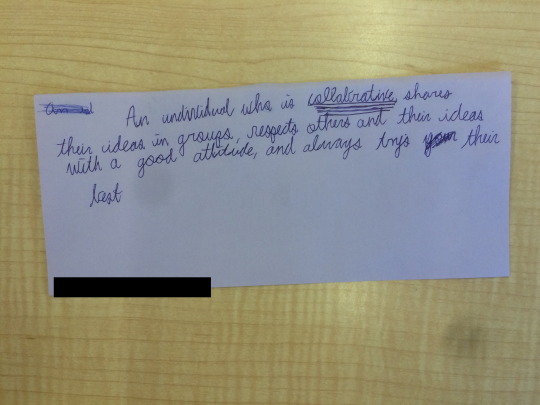 An undividual who is collabrative, shares
their ideas in groups, respects others and their ideas
with a good attidude, and always trys their
best